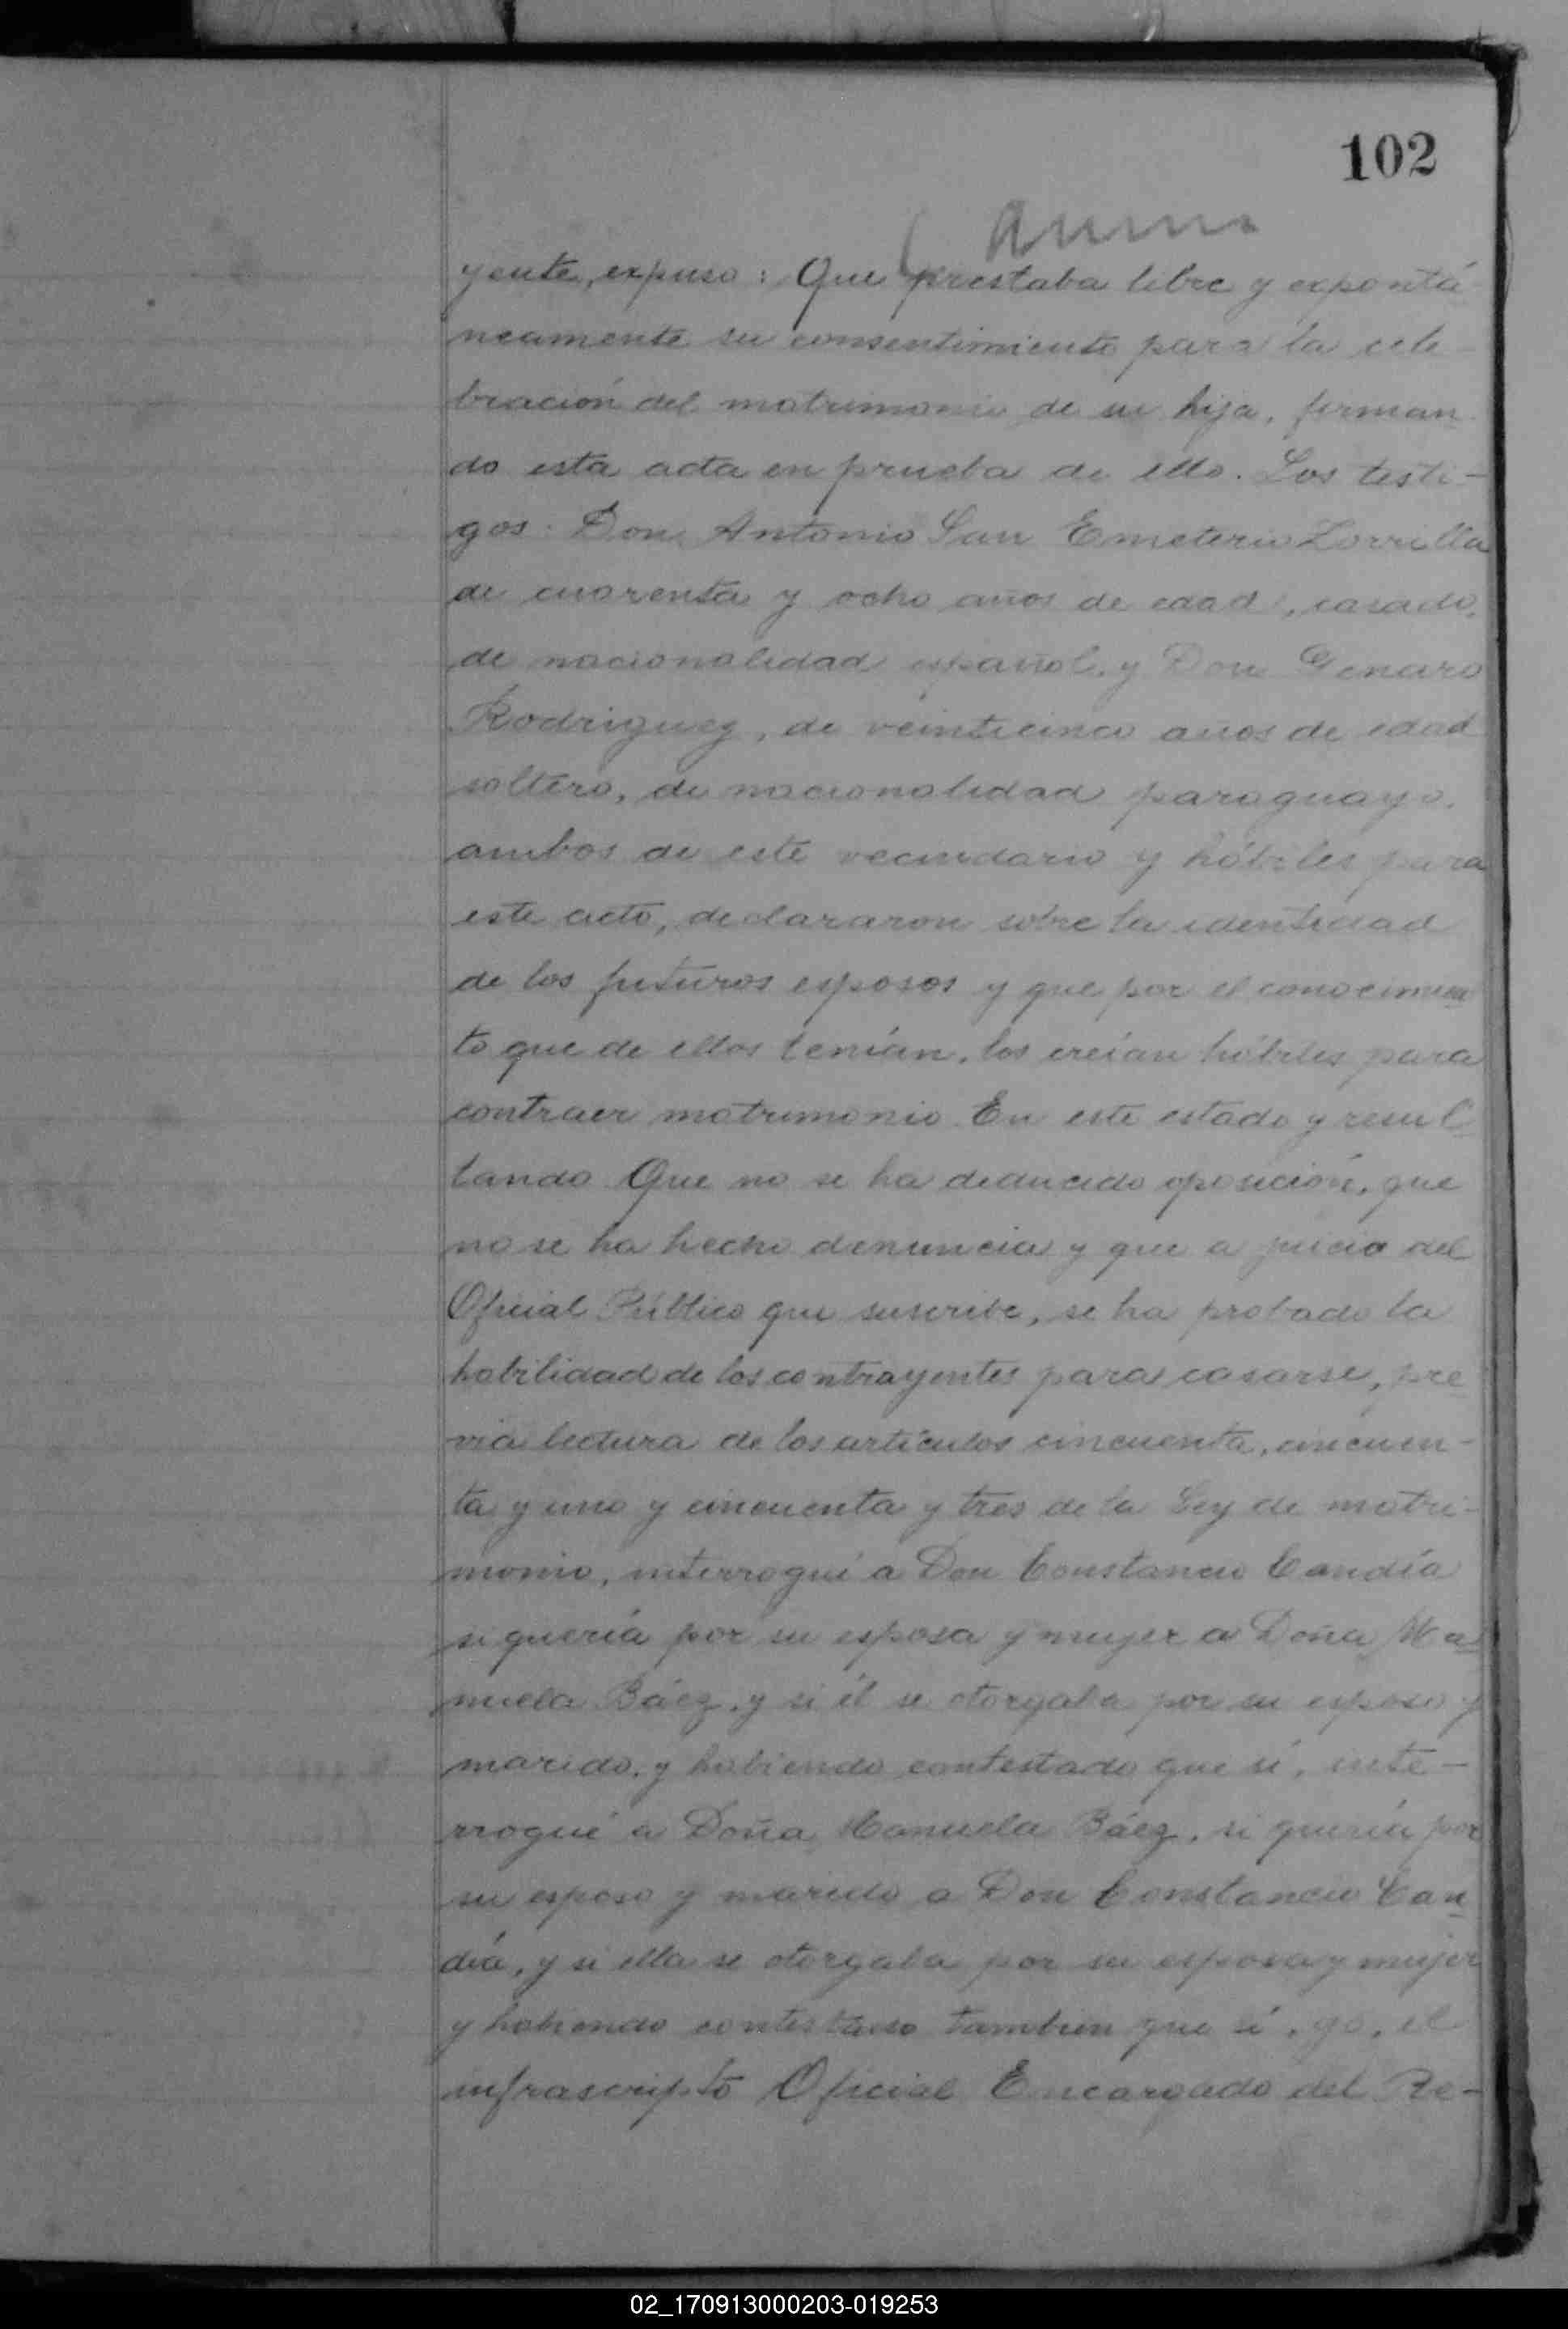 102
yente, expuso: Que prestaba libre y expontá
neamente su consentimiento para la cele-
bración del matrimonio de su hija, firman-
do esta acta en prueba de ello. Los testi-
gos: Don Antonio San Emeterio Zorrilla
de cuarenta y ocho años de edad, casado,
de nacionalidad español, y Don Genaro
Rodriguez, de veinticinco años de edad
soltero, de nacionalidad paraguayo,
ambos de este vecindario y hábiles para
este acto, declararon sobre la identidad
de los futuros esposos y que por el conocimien
to que de ellos tenían, los creían hábiles para
contraer matrimonio. En este estado y resul-
tando Que no se ha deducido oposición, que
no se ha hecho denuncia y que a juicio del
Oficial Público que suscribe, se ha probado la
habilidad de los contrayentes para casarse, pre-
via lectura de los artículos cincuenta, cincuen-
ta y uno y cincuenta y tres de la Ley de matri-
monio, interrogué a Don Constancio Candía
si quería por su esposa y mujer a Doña Ma-
nuela Báez, y si él se otorgaba por su esposo y
marido, y habiendo contestado que sí, inte-
rrogué a Doña Manuela Báez, si quería por
su esposo y marido a Don Constancio Can-
día, y si ella se otorgaba por su esposa y mujer
y habiendo contestado tambien que sí, yo, el
infrascripto Oficial Encargado del Re-
02_170913000203-019253